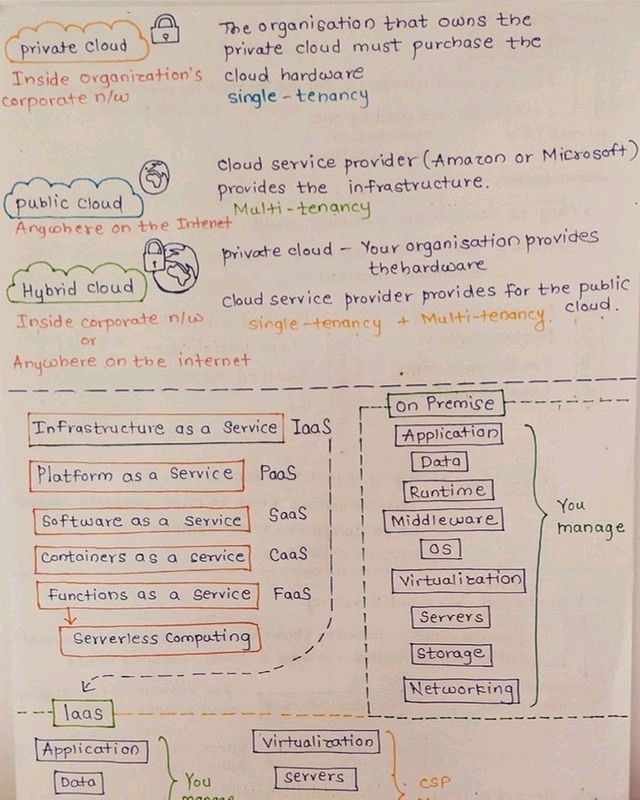 private cloud
Inside Organization's
corporate n/w
The organisation that owns the
private cloud must purchase the
cloud hardware
single-tenancy
public cloud
Anywhere on the Internet
cloud service provider (Amazon or Microsoft)
provides the infrastructure.
Multi-tenancy
Hybrid cloud
Inside corporate n/w
or
Anywhere on the internet
private cloud - Your organisation provides
the hardware
cloud service provider provides for the public
cloud.
single-tenancy + Multi-tenancy
Infrastructure as a Service IaaS
Platform as a Service PaaS
Software as a Service SaaS
Containers as a service CaaS
Functions as a Service FaaS
Serverless Computing
On Premise
Application
Data
Runtime
Middleware
OS
Virtualization
Servers
Storage
Networking
You
manage
IaaS
Application
Data
You
manage
Virtualization
servers
CSP